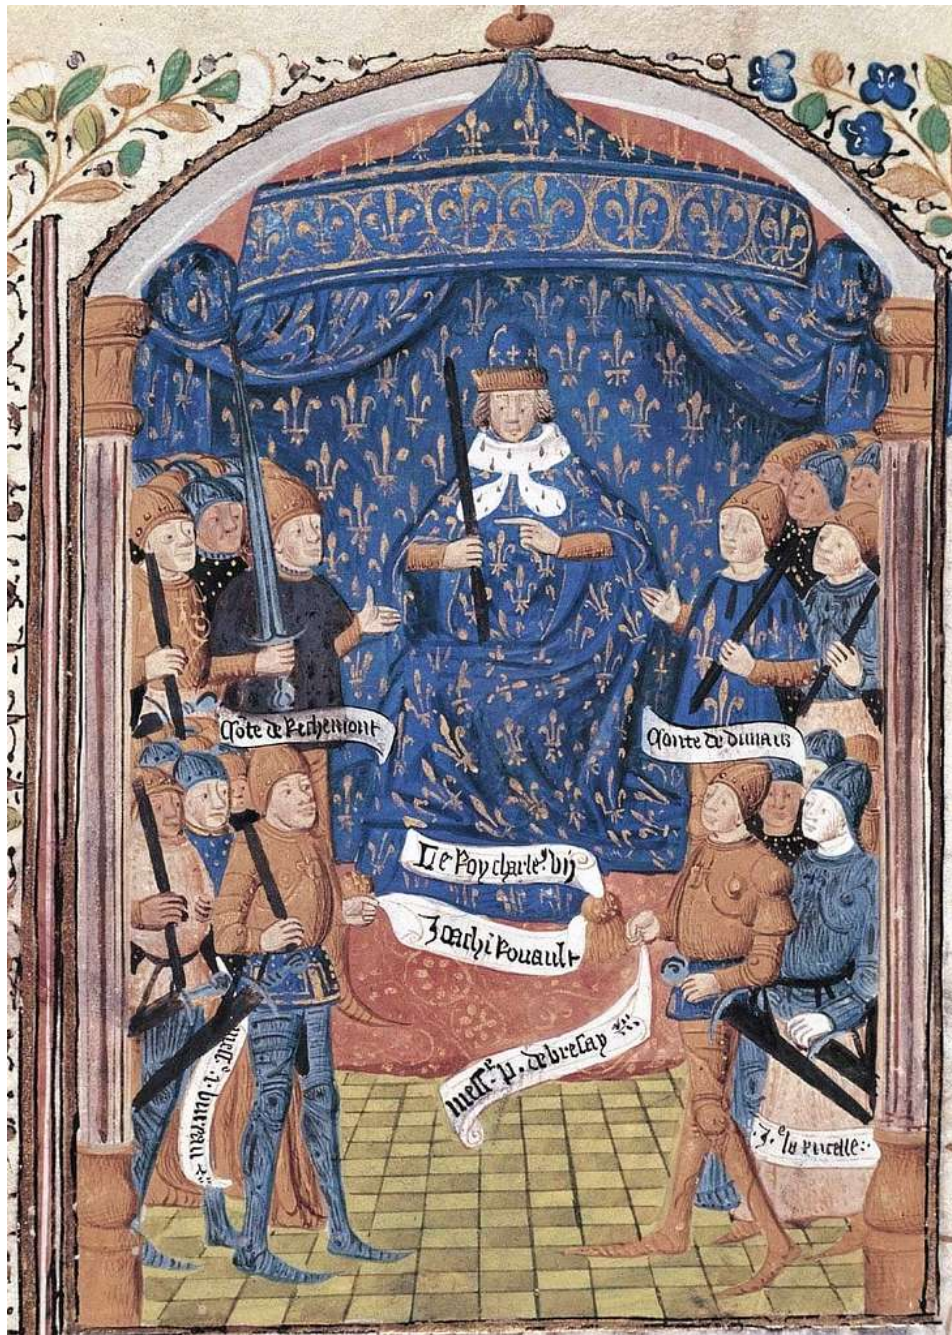 Cōte de Richemont
Conte de dunais
Le Roy charles vij
Joachi Rouault
messe. p. de bresay
messe. J. bureau
J.e la pucelle